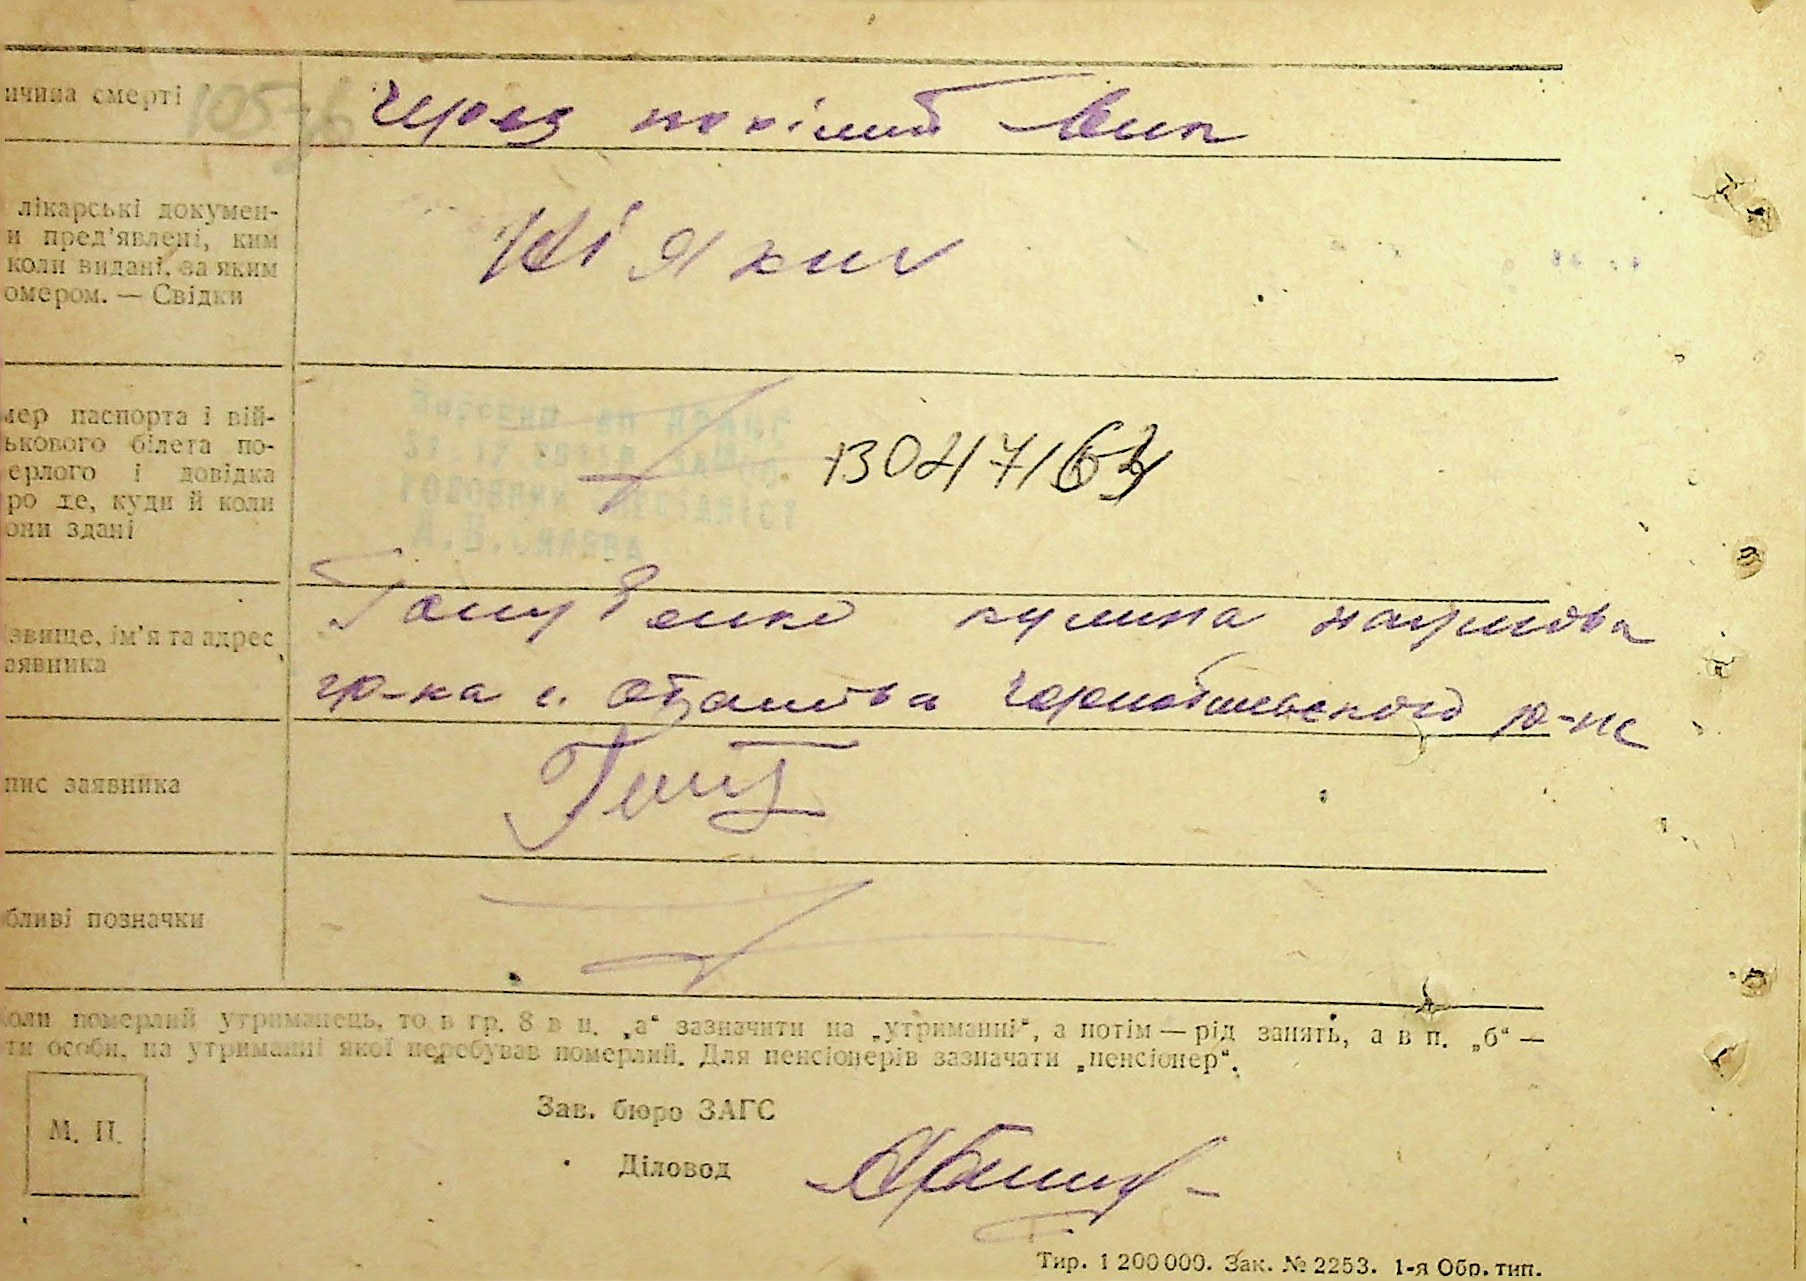 ичина смерті
105
Через похилий вик
лікарські докумен-
и пред'явлені, ким
коли видані, за яким
омером. — Свідки
Ні яких
мер паспорта і вій-
ськового білета по-
ерлого і довідка
ро те, куди й коли
они здані
ГОЛОВНИЙ СПЕЦІАЛІСТ
звище, ім'я та адрес
аявника
кулина наумовна
гр-ка с. Осташова Чорнобильского р-не
пис заявника
бливі позначки
Коли померлий утриманець, то в гр. 8 в п. „а“ зазначити на „утриманні“, а потім — рід занять, а в п. „б“ —
ти особи, на утриманні якої перебував померлий. Для пенсіонерів зазначати „пенсіонер“.
М. П.
Зав. бюро ЗАГС
Діловод
Тир. 1 200 000. Зак. № 2253. 1-я Обр. тип.